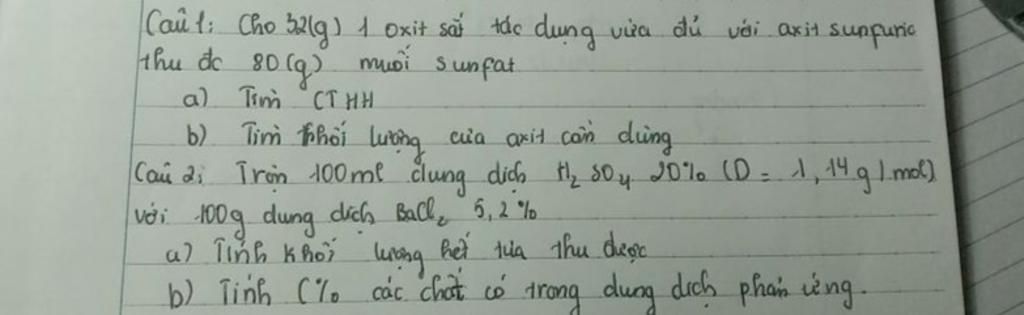 Câu 1: Cho 32(g) 1 oxit sắt tác dụng vừa đủ với axit sunfuric
thu đc 80(g) muối sunfat
a) Tìm CTHH
b) Tìm khối lượng của axit cần dùng
Câu 2: Trộn 100ml dung dịch H₂SO₄ 20% (D = 1,14g/mol)
với 100g dung dịch BaCl₂ 5,2%
a) Tính khối lượng kết tủa thu được
b) Tính C% các chất có trong dung dịch phản ứng.